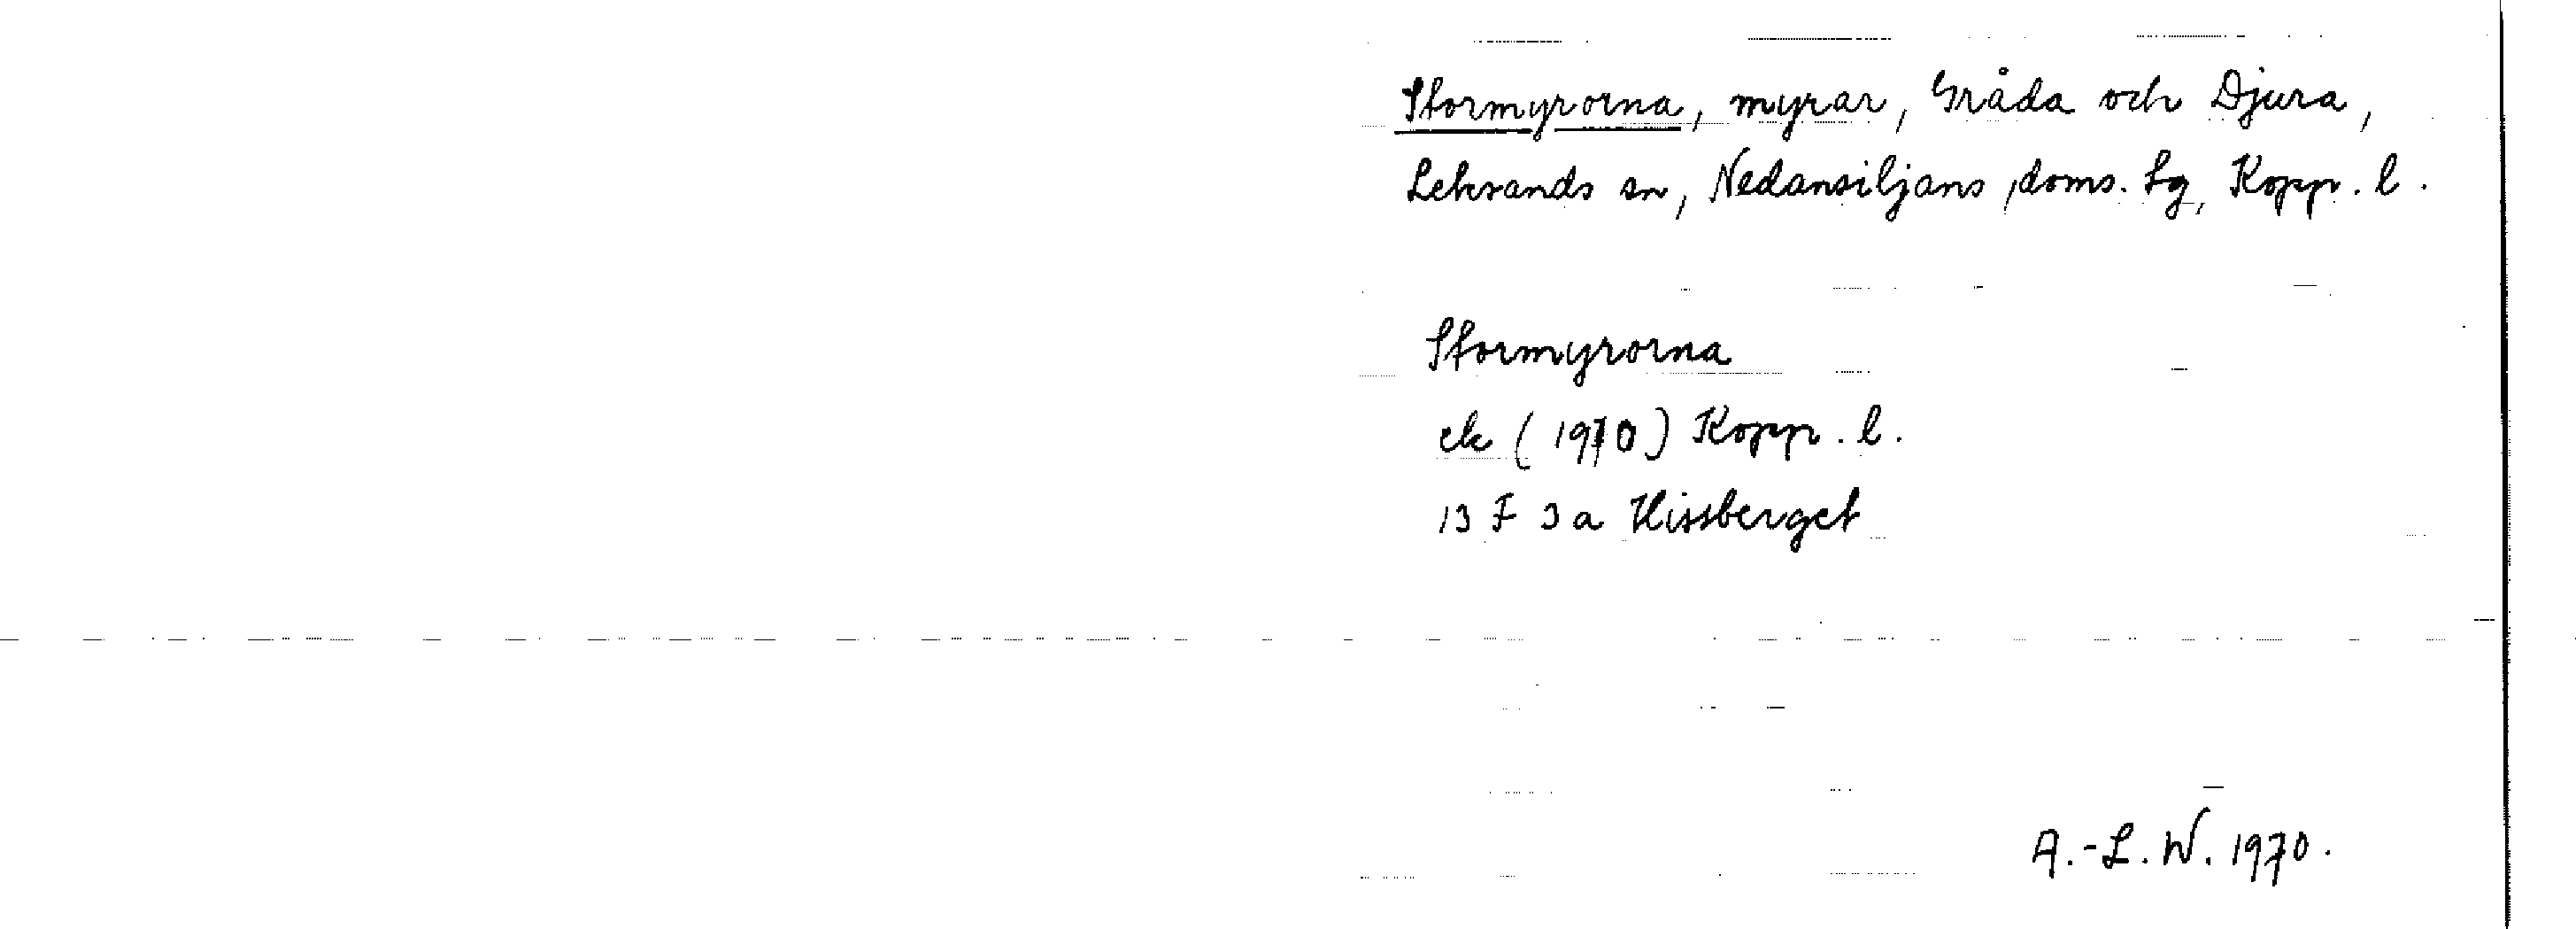 Stormyrorna, myrar, Gråda och Djura,
Leksands sn, Nedansiljans doms. lg, Kopp. l.
Stormyrorna
ek (1970) Kopp. l.
13 F 3 a Hissberget
A.-L. W. 1970.